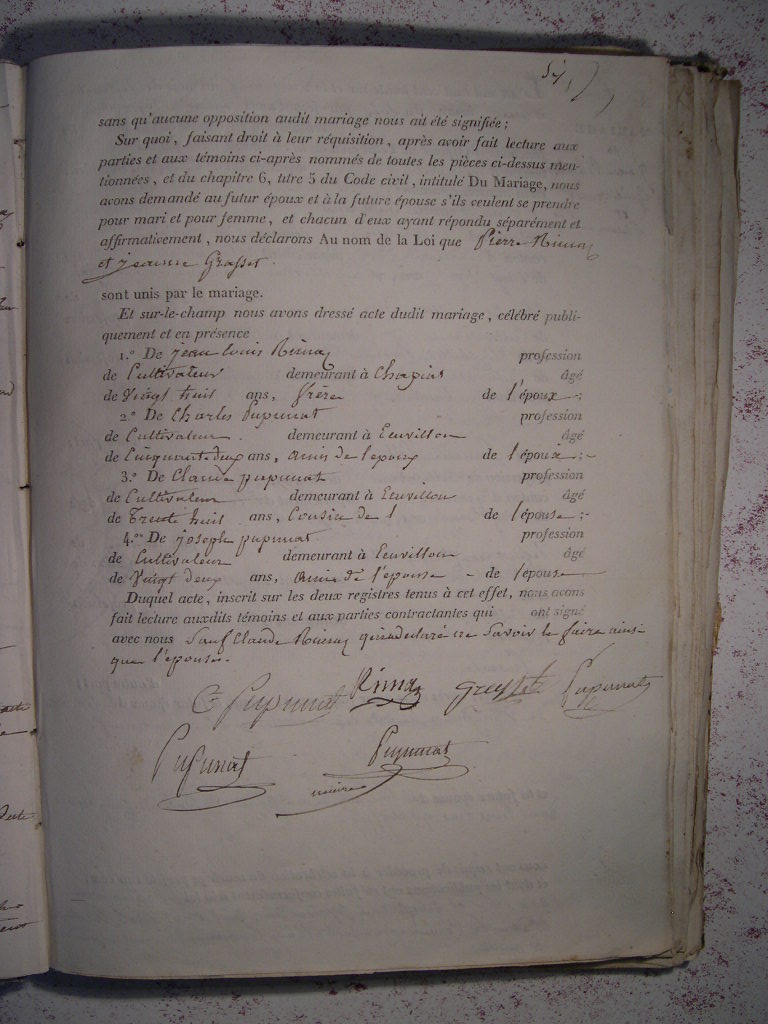 sans qu'aucune opposition audit mariage nous ait été signifiée ;
Sur quoi, faisant droit à leur réquisition, après avoir fait lecture aux
parties et aux témoins ci-après nommés de toutes les pièces ci-dessus men-
tionnées, et du chapitre 6, titre 5 du Code civil, intitulé Du Mariage, nous
avons demandé au futur époux et à la future épouse s'ils veulent se prendre
pour mari et pour femme, et chacun d'eux ayant répondu séparément et
affirmativement, nous déclarons Au nom de la Loi que Pierre
et jeanne Grasset
sont unis par le mariage.
Et sur-le-champ nous avons dressé acte dudit mariage, célébré publi-
quement et en présence
1.° De jean louis profession
de Cultivateur demeurant à âgé
de Vingt huit ans, frère de l'époux
2.° De Charles pupunat profession
de Cultivateur demeurant à Euvillon âgé
de Cinquante deux ans, amis de lepoux de l'époux
3.° De Claude pupunat profession
de Cultivateur demeurant à Euvillon âgé
de Trente huit ans, Cousin de l de l'épouse
4.° De joseph pupunat profession
de Cultivateur demeurant à Euvillon âgé
de Vingt deux ans, amis de l'epouse de l'épouse
Duquel acte, inscrit sur les deux registres tenus à cet effet, nous avons
fait lecture auxdits témoins et aux parties contractantes qui ont signé
avec nous Sauf Claude qui a declaré ne Savoir le faire ainsi
que l'epouse.
Pupunat Pupunat
Pupunat Pupunat
maire